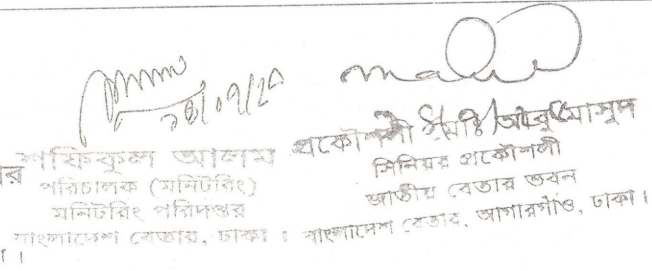 র শফিকুল আলম
পরিচালক (মনিটরিং)
মনিটরিং পরিদপ্তর
বাংলাদেশ বেতার, ঢাকা ।
প্রকৌশলী আবু মাসুদ
সিনিয়র প্রকৌশলী
জাতীয় বেতার ভবন
বাংলাদেশ বেতার, আগারগাঁও, ঢাকা ।
। ।